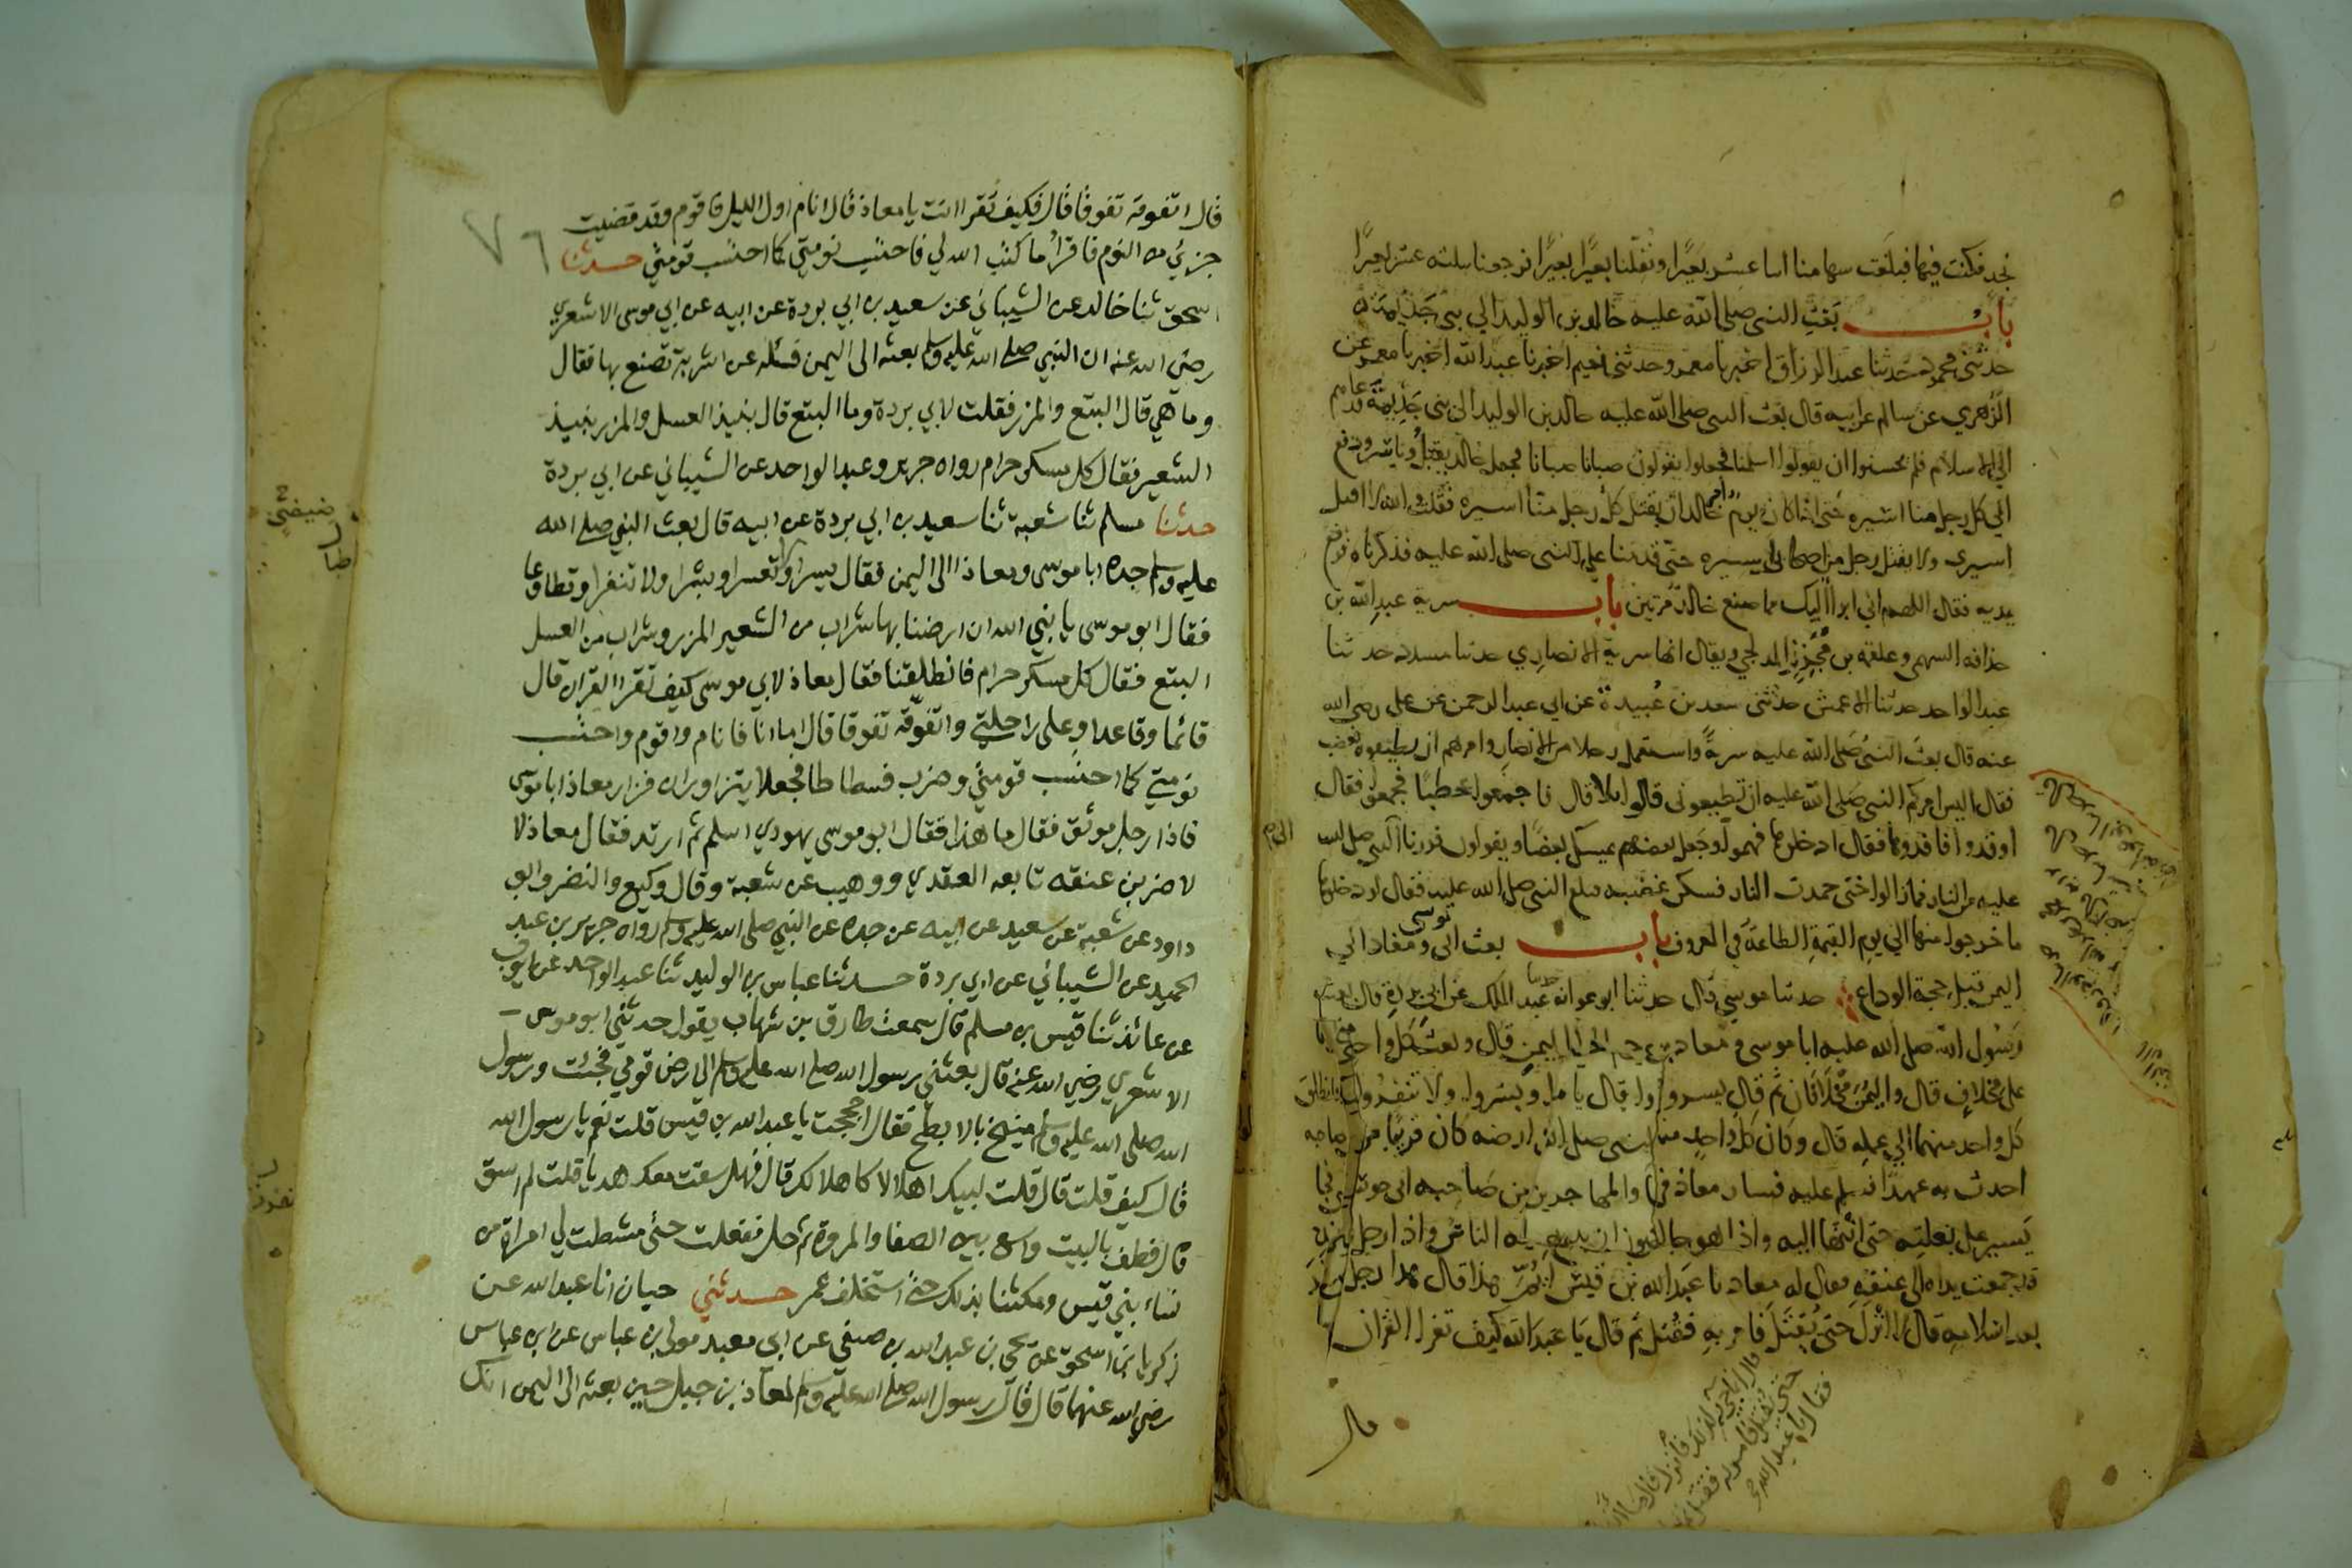 نجد فكنت فيها فبلغت سهامنا اثنا عشر بعيرا ونفلنا بعيرا بعيرا فرجعنا بثلثه عشر بعيرا
باب بعث النبي صلى الله عليه خالد بن الوليد الى بني جذيمة
حدثني محمود حدثنا عبد الرزاق اخبرنا معمر وحدثني نعيم اخبرنا عبد الله اخبرنا معمر عن
الزهري عن سالم عن ابيه قال بعث النبي صلى الله عليه خالد بن الوليد الى بني جذيمة فدعاهم
الى الاسلام فلم يحسنوا ان يقولوا اسلمنا فجعلوا يقولون صبانا صبانا فجعل خالد يقتل وياسر ودفع
الى كل رجل منا اسيره حتى اذا كان يوم امر خالد ان يقتل كل رجل منا اسيره فقلت والله لا اقتل
اسيري ولا يقتل رجل من اصحابي اسيره حتى قدمنا على النبي صلى الله عليه فذكرناه فرفع
يديه فقال اللهم اني ابرا اليك مما صنع خالد مرتين باب سرية عبد الله بن
حذافة السهمي وعلقمة بن مجزز المدلجي ويقال انها سرية الانصاري حدثنا مسدد حدثنا
عبد الواحد حدثنا الاعمش حدثني سعد بن عبيدة عن ابي عبد الرحمن عن علي رضي الله
عنه قال بعث النبي صلى الله عليه سرية واستعمل رجلا من الانصار وامرهم ان يطيعوه فغضب
فقال اليس امركم النبي صلى الله عليه ان تطيعوني قالوا بلا قال فاجمعوا حطبا فجمعوا فقال
اوقدوا فاقدوها فقال ادخلوها فهموا وجعل بعضهم يمسك بعضا ويقولون فررنا الى النبي صلى الله
عليه من النار فمازالوا حتى خمدت النار فسكن غضبه فبلغ النبي صلى الله عليه فقال لو دخلوها
ما خرجوا منها الى يوم القيمة الطاعة في المعروف باب بعث ابي موسى ومعاذ الى
اليمن قبل حجة الوداع حدثنا موسى قال حدثنا ابو عوانة حدثنا عبد الملك عن ابي بردة قال بعث
رسول الله صلى الله عليه ابا موسى ومعاذ بن جبل الى اليمن قال وبعث كل واحد منهما
على مخلاف قال واليمن مخلافان ثم قال يسرا وبشرا ولا تنفرا فانطلق
كل واحد منهما الى عمله قال وكان كل واحد منهما اذا سار في ارضه كان قريبا من صاحبه
احدث به عهدا فسلم عليه فسار معاذ في ارضه قريبا من صاحبه ابي موسى فجا
يسير على بغلته حتى انتها اليه واذا هو جالس وقد اجتمع اليه الناس واذا رجل عنده
قد جمعت يداه الى عنقه فقال له معاذ يا عبد الله بن قيس ايم هذا قال هذا رجل كفر
بعد اسلامه قال لا انزل حتى يقتل فامر به فقتل ثم قال يا عبد الله كيف تقرا القران
قال
قال انما جي به لذلك فانزل قال ما انزل
حتى يقتل فامر به فقتل ثم
فقال يا عبد الله
٧٦
قال اتفوقه تفوقا قال فكيف تقرا انت يا معاذ قال انام اول الليل فاقوم وقد قضيت
جزئي من النوم فاقرا ما كتب الله لي فاحتسب نومتي كما احتسب قومتي حدثنا
اسحق ثنا خالد عن الشيباني عن سعيد بن ابي بردة عن ابيه عن ابي موسى الاشعري
رضي الله عنه ان النبي صلى الله عليه وسلم بعثه الى اليمن فسئله عن اشربة تصنع بها فقال
وما هي قال البتع والمزر فقلت لابي بردة وما البتع قال نبيذ العسل والمزر نبيذ
الشعير فقال كل مسكر حرام رواه جرير وعبد الواحد عن الشيباني عن ابي بردة
حدثنا مسلم ثنا شعبة ثنا سعيد بن ابي بردة عن ابيه قال بعث النبي صلى الله
عليه وسلم جده ابا موسى ومعاذا الى اليمن فقال يسرا ولا تعسرا وبشرا ولا تنفرا وتطاوعا
فقال ابو موسى يا نبي الله ان ارضنا بها شراب من الشعير المزر وشراب من العسل
البتع فقال كل مسكر حرام فانطلقنا فقال معاذ لابي موسى كيف تقرا القران قال
قائما وقاعدا وعلى راحلتي واتفوقه تفوقا قال اما انا فانام واقوم واحتسب
نومتي كما احتسب قومتي وضرب فسطاطا فجعلا يتزاوران فزار معاذ ابا موسى
فاذا رجل موثق فقال ما هذا فقال ابو موسى يهودي اسلم ثم ارتد فقال معاذ لا
لاضربن عنقه تابعه العقدي ووهيب عن شعبة وقال وكيع والنضر وابو
داود عن شعبة عن سعيد عن ابيه عن جده عن النبي صلى الله عليه وسلم رواه جرير بن عبد
الحميد عن الشيباني عن ابي بردة حدثنا عباس بن الوليد ثنا عبد الواحد عن ايوب
عن عائذ ثنا قيس بن مسلم قال سمعت طارق بن شهاب يقول حدثني ابو موسى
الاشعري رضي الله عنه قال بعثني رسول الله صلى الله عليه وسلم الى ارض قومي فجئت ورسول
الله صلى الله عليه وسلم منيخ بالابطح فقال احججت يا عبد الله بن قيس قلت نعم يا رسول الله
قال كيف قلت قال قلت لبيك اهلالا كاهلالك قال فهل سقت معك هديا قلت لم اسق
قال فطف بالبيت واسع بين الصفا والمروة ثم حل ففعلت حتى مشطت لي امراة من
نساء بني قيس ومكثنا بذلك حتى استخلف عمر حدثني حبان انا عبد الله عن
زكريا بن اسحق عن يحيى بن عبد الله بن صيفي عن ابي معبد مولى بن عباس عن ابن عباس
رضي الله عنهما قال قال رسول الله صلى الله عليه وسلم لمعاذ بن جبل حين بعثه الى اليمن انك